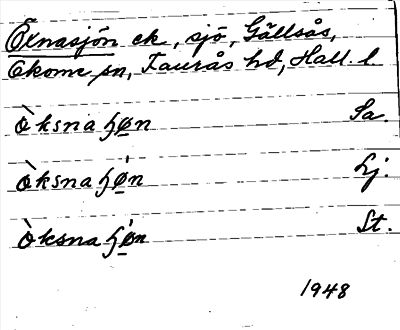 Öxnasjön ek, sjö, Gällsås,
Okome sn, Faurås hd, Hall. l
Òksna ɧøn Sa.
Òksna ɧǿn Lj.
Òksna ɧǿn St.
1948